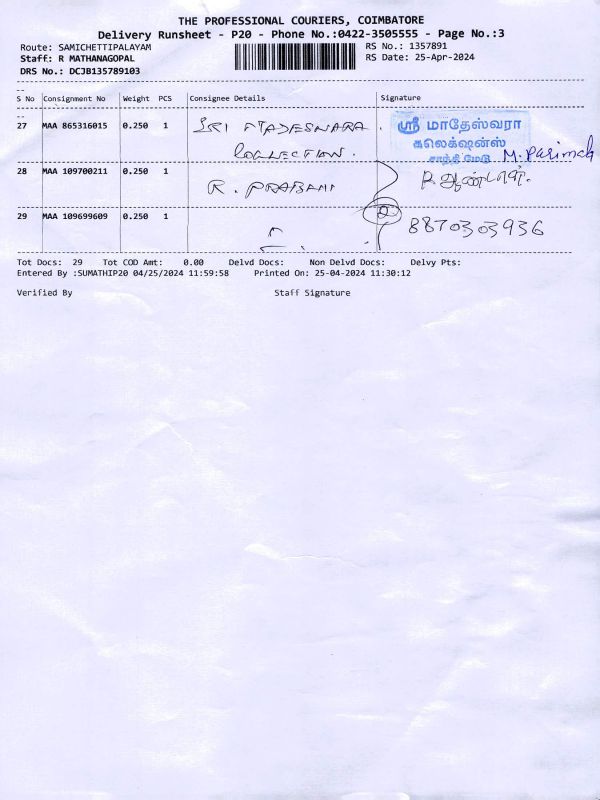 THE PROFESSIONAL COURIERS, COIMBATORE
Delivery Runsheet - P20 - Phone No.:0422-3505555 - Page No.:3
Route: SAMICHETTIPALAYAM
RS No.: 1357891
Staff: R MATHANAGOPAL
RS Date: 25-Apr-2024
DRS No.: DCJB135789103
S No Consignment No Weight PCS Consignee Details Signature
27 MAA 865316015 0.250 1 SRI MADESWARA
COLLECTION.
ஸ்ரீ மாதேஸ்வரா
கலெக்ஷன்ஸ்
சாந்தி மேடு
28 MAA 109700211 0.250 1 R. PRABANI
29 MAA 109699609 0.250 1 8870303936
Tot Docs: 29 Tot COD Amt: 0.00 Delvd Docs: Non Delvd Docs: Delvy Pts:
Entered By :SUMATHIP20 04/25/2024 11:59:58 Printed On: 25-04-2024 11:30:12
Verified By Staff Signature